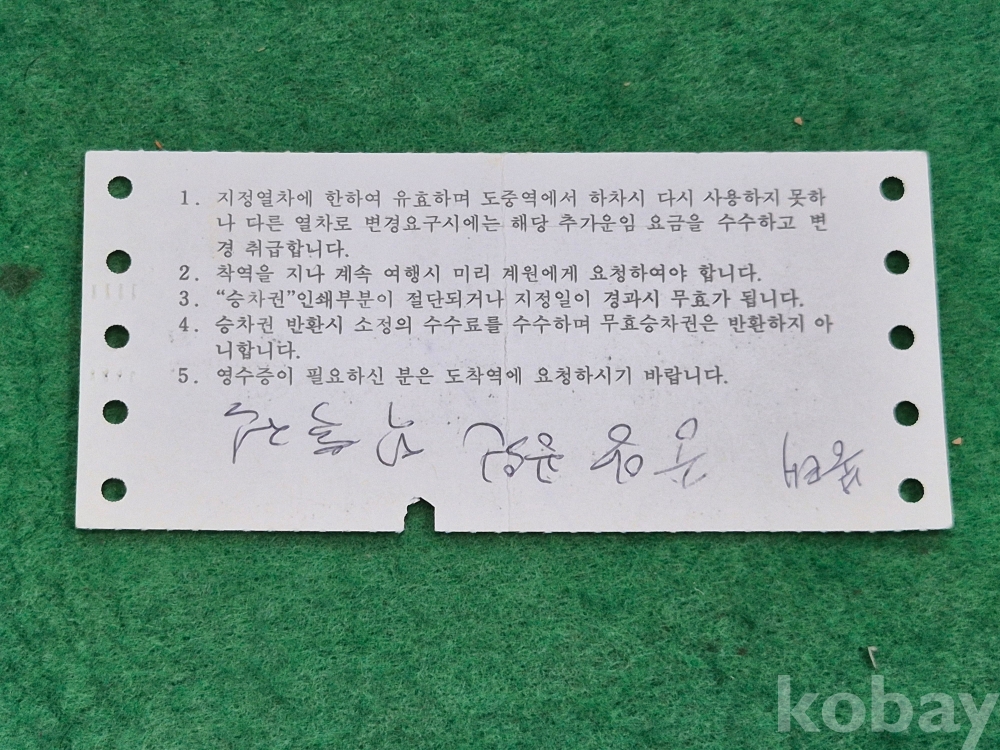 1. 지정열차에 한하여 유효하며 도중역에서 하차시 다시 사용하지 못하
나 다른 열차로 변경요구시에는 해당 추가운임 요금을 수수하고 변
경 취급합니다.
2. 착역을 지나 계속 여행시 미리 계원에게 요청하여야 합니다.
3. “승차권”인쇄부분이 절단되거나 지정일이 경과시 무효가 됩니다.
4. 승차권 반환시 소정의 수수료를 수수하며 무효승차권은 반환하지 아
니합니다.
5. 영수증이 필요하신 분은 도착역에 요청하시기 바랍니다.
kobay